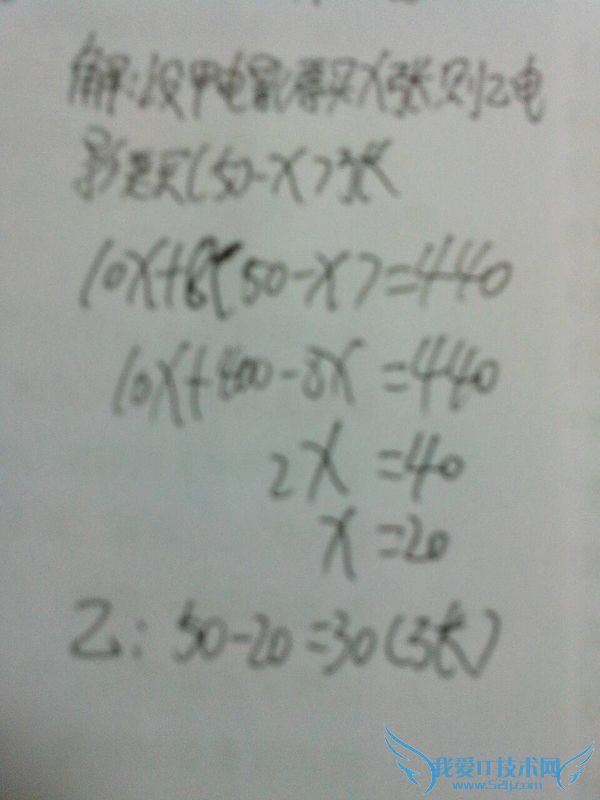 解:设甲电影票买X张,则乙电
影票买(50-X)张
10X+8(50-X)=440
10X+400-8X=440
2X=40
X=20
乙:50-20=30(张)
我爱IT技术网
www.52ij.com